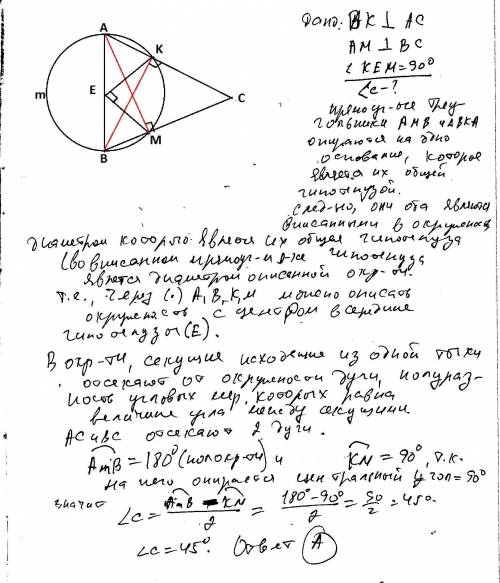 Дано: BK ⊥ AC
AM ⊥ BC
∠KEM=90°
∠C-?
A
K
E
m
C
M
B
прямоуг-ые треу-
гольники AMB и ABKA
опираются на одно
основание, которое
является их общей
гипотенузой.
след-но, они оба являются
вписанными в окружность
диаметром которой является их общая гипотенуза
(во вписанном прямоуг-м тр-ке гипотенуза
является диаметром описанной окр-ти.
т.е., через (.) A, B, K, M можно описать
окружность с центром в середине
гипотенузы (E).
В окр-ти, секущие исходящие из одной точки
отсекают от окружности дуги, полураз-
ность угловых мер, которых равна
величине угла между секущими
AC и BC отсекают 2 дуги.
AmB = 180° (полокр-ти) и KN = 90°, т.к.
на него опирается центральный угол = 90°
значит
∠C = AmB - KN / 2 = 180° - 90° / 2 = 90 / 2 = 45°
∠C = 45°. Ответ A